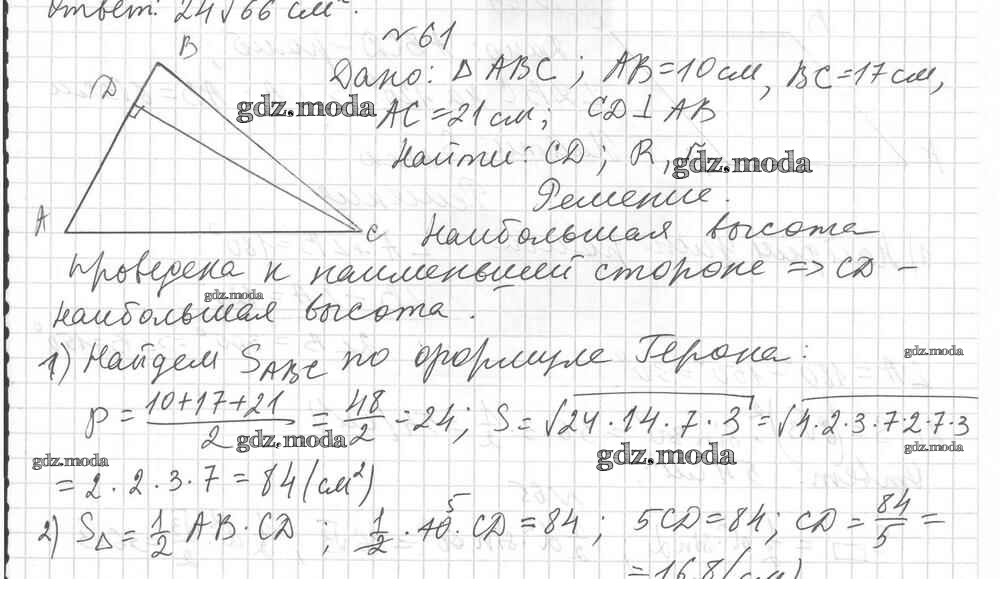 Ответ: 24√66 см².
№61
B
D
A
C
Дано: △ ABC; AB=10 см, BC=17 см,
AC=21 см; CD⊥AB
Найти: CD; R,
Решение.
Наибольшая высота
проведена к наименьшей стороне => CD –
наибольшая высота.
1) Найдем S_ABC по формуле Герона:
p = (10+17+21)/2 = 48/2 = 24; S = √24·14·7·3 = √4·2·3·7·2·7·3
= 2·2·3·7 = 84 (см²)
2) S_△ = 1/2 AB·CD; 1/2·10·CD = 84; 5CD = 84; CD = 84/5 =
5
= 16,8 (см)
gdz.moda
gdz.moda
gdz.moda
gdz.moda
gdz.moda
gdz.moda
gdz.moda
gdz.moda